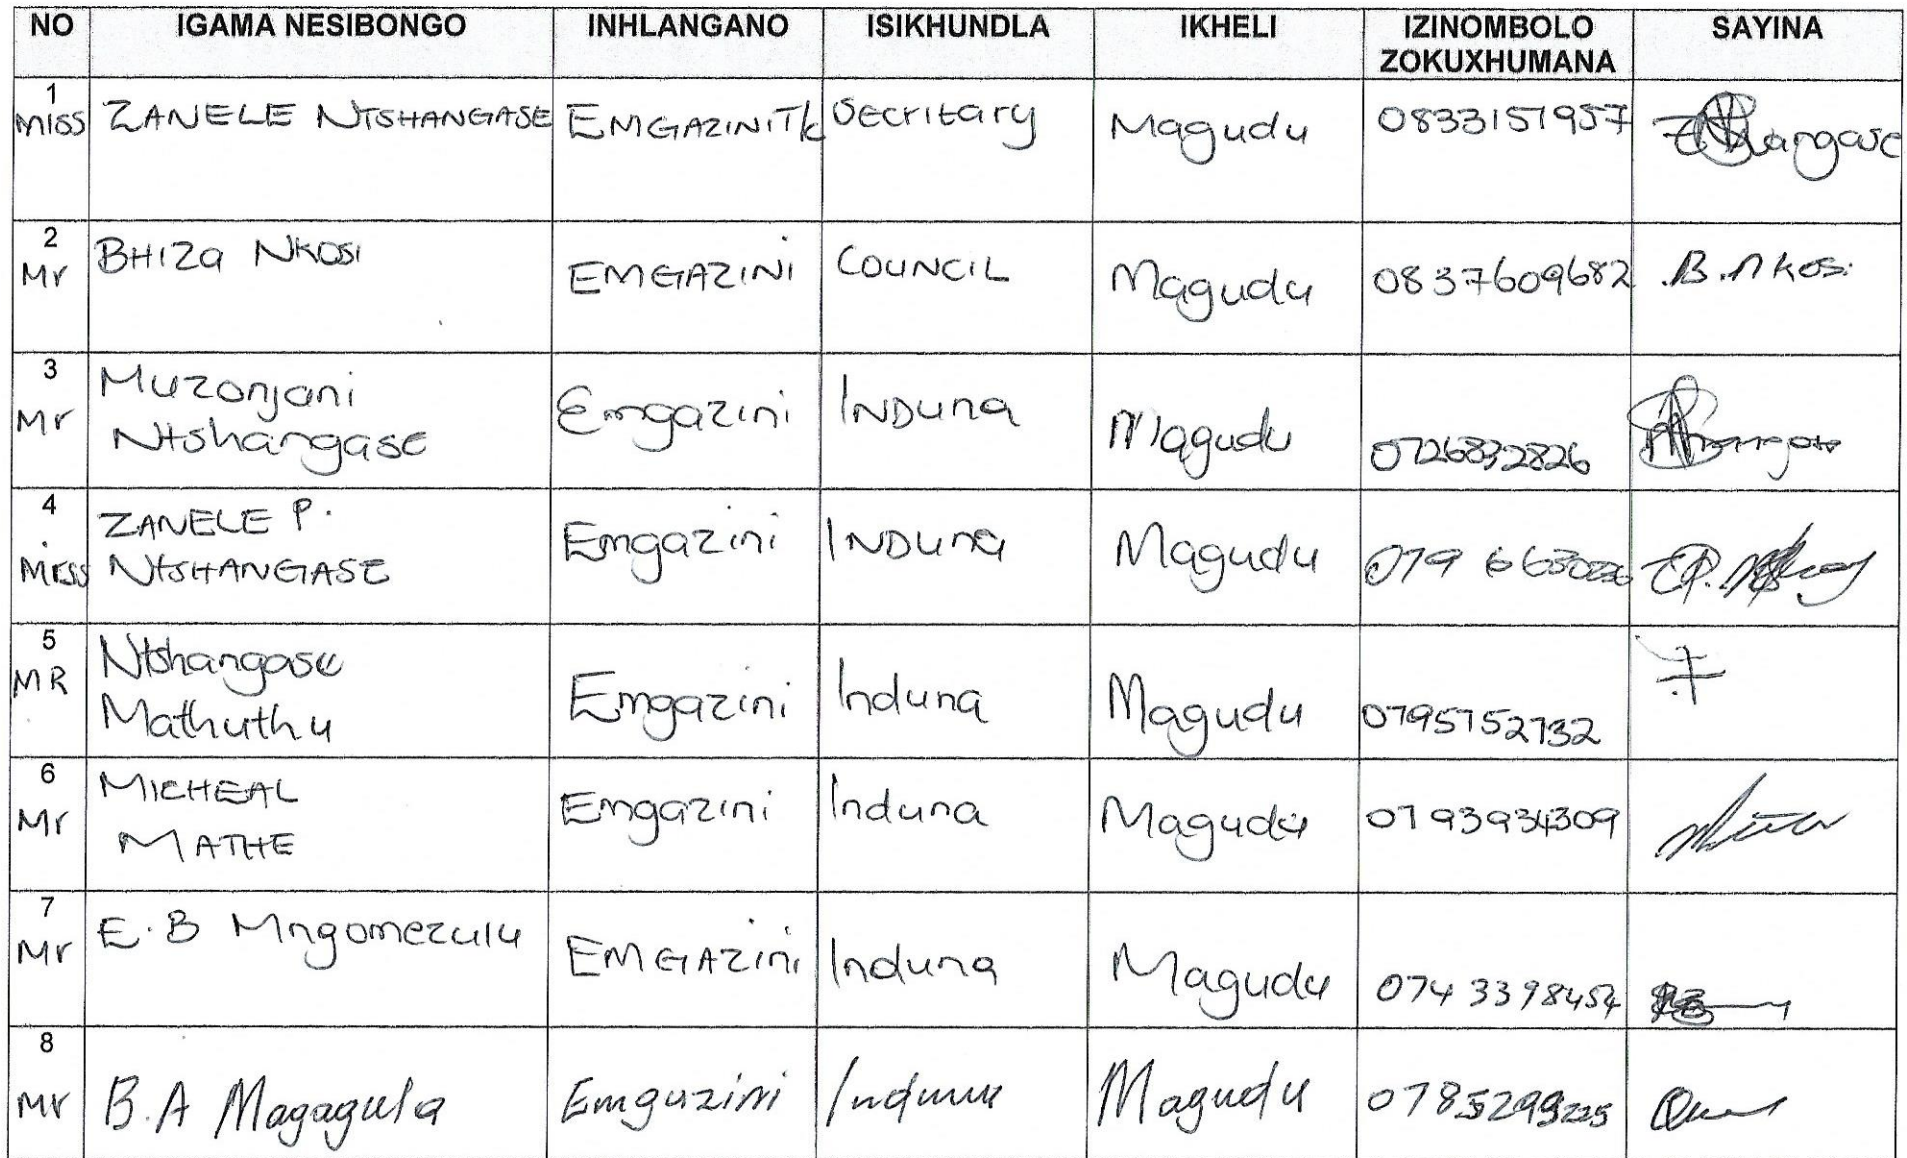 NO IGAMA NESIBONGO INHLANGANO ISIKHUNDLA IKHELI IZINOMBOLO ZOKUXHUMANA SAYINA
1 Miss ZANELE NTSHANGASE EMGAZINI T/C Secritary Magudu 0833151957
2 Mr BHIZa NKOSI EMGAZINI COUNCIL Magudu 0837609682 B.Nkosi
3 Mr Muzonjani Ntshangase Emgazini INDUNa Magudu 0726832826
4 Miss ZANELE P. NTSHANGASE Emgazini INDUNa Magudu 079
5 MR Ntshangase Mathuthu Emgazini Induna Magudu 0795752732
6 Mr MICHEAL MATHE Emgazini Induna Magudu 0793934309
7 Mr E.B Mngomezulu EMGAZini Induna Magudu 0743398454
8 Mr B.A Magagula Emgazini Induna Magudu